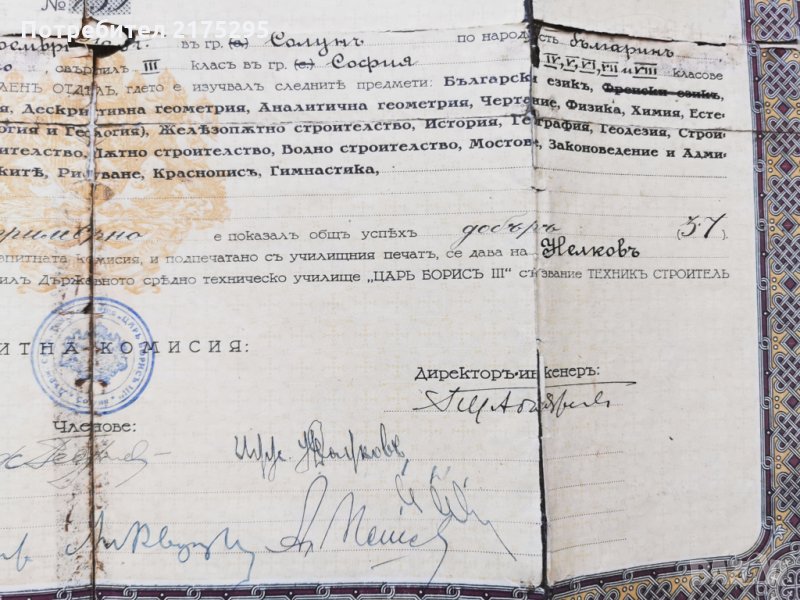 Потребител 2175295
№
въ гр. (с.) Солунъ по народность българинъ
свършилъ III класъ въ гр. (с.) София IV, V, VI, VII и VIII класове
ОТДѢЛЪ, гдето е изучвалъ следнитѣ предмети: Български езикъ, Френски езикъ,
Дескриптивна геометрия, Аналитична геометрия, Чертане, Физика, Химия, Есте-
огия и Геология), Желѣзопѫтно строителство, История, География, Геодезия, Строи-
ителство, Пѫтно строителство, Водно строителство, Мостове, Законоведение и Адми-
Рисуване, Краснописъ, Гимнастика,
примѣрно е показалъ общъ успѣхъ добъръ (3·7).
изпитната комисия, и подпечатано съ училищния печатъ, се дава на Нелковъ
илъ Държавното срѣдно техническо училище „ЦАРЬ БОРИСЪ III“ съ звание ТЕХНИКЪ СТРОИТЕЛЬ
ИТНА КОМИСИЯ:
Директоръ-инженеръ:
Членове:
инж.